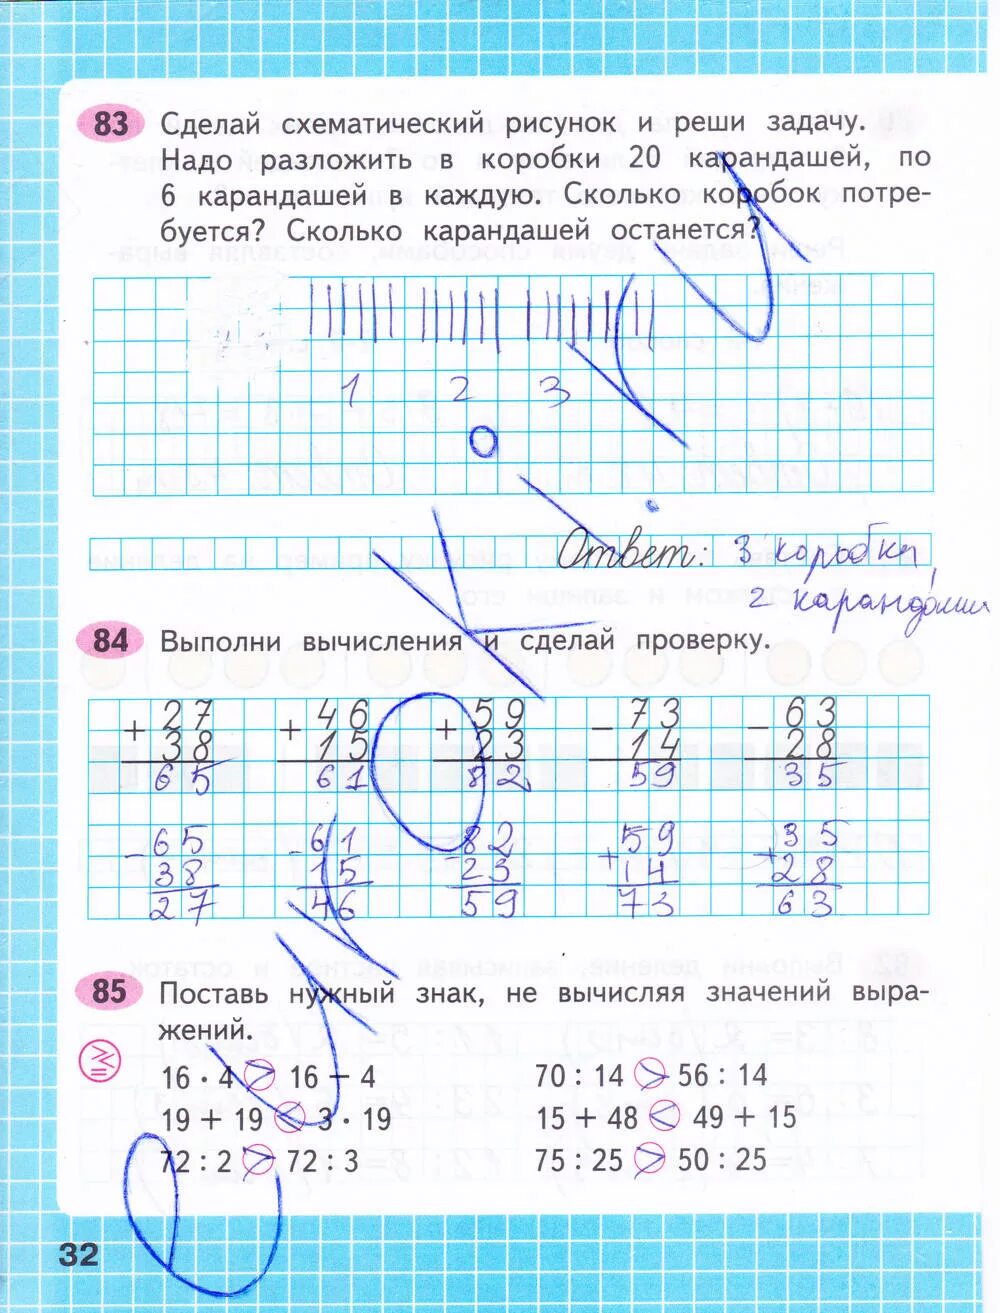 83 Сделай схематический рисунок и реши задачу.
Надо разложить в коробки 20 карандашей, по
6 карандашей в каждую. Сколько коробок потре-
буется? Сколько карандашей останется?
1 2 3
Ответ: 3 коробки,
2 карандаша
84 Выполни вычисления и сделай проверку.
+ 27 + 46 + 59 − 73 − 63
38 15 23 14 28
65 61 82 59 35
− 65 − 61 − 82 + 59 + 35
38 15 23 14 28
27 46 59 73 63
85 Поставь нужный знак, не вычисляя значений выра-
жений.
16 · 4 > 16 − 4 70 : 14 > 56 : 14
19 + 19 < 3 · 19 15 + 48 < 49 + 15
72 : 2 > 72 : 3 75 : 25 > 50 : 25
32